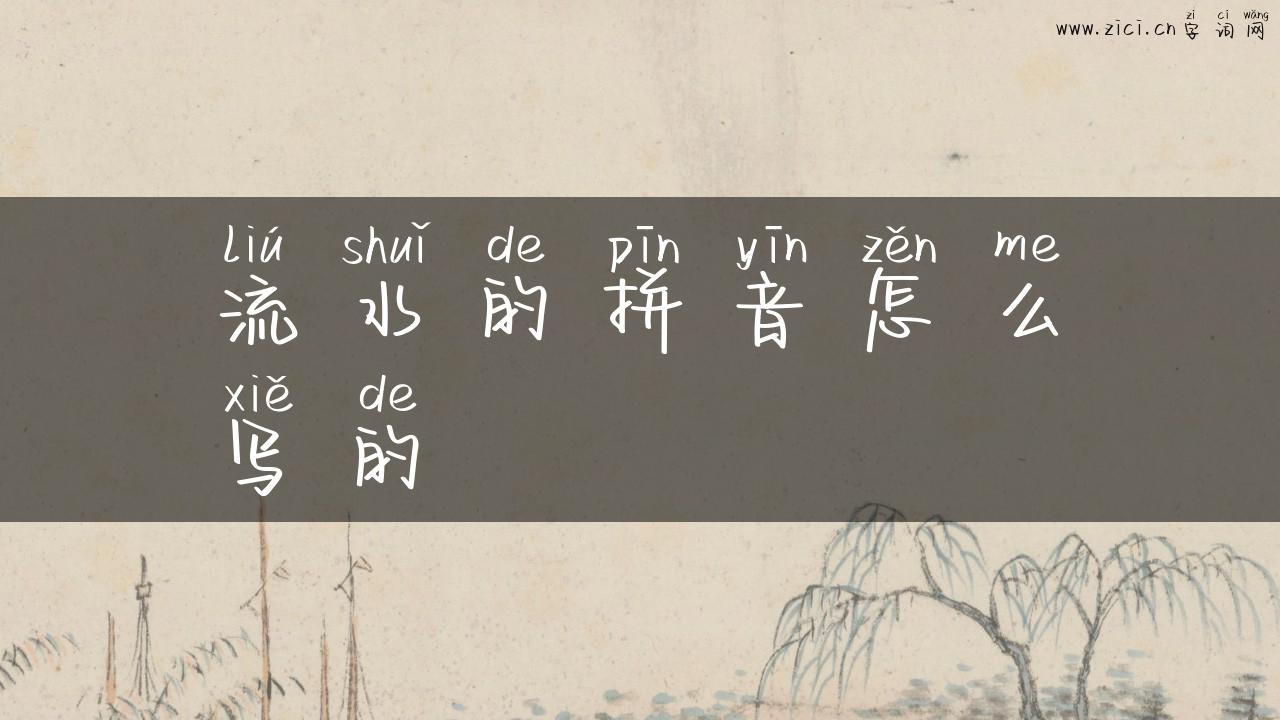 zì cí wǎng
www.zici.cn 字词网
liú shuǐ de pīn yīn zěn me
流水的拼音怎么
xiě de
写的